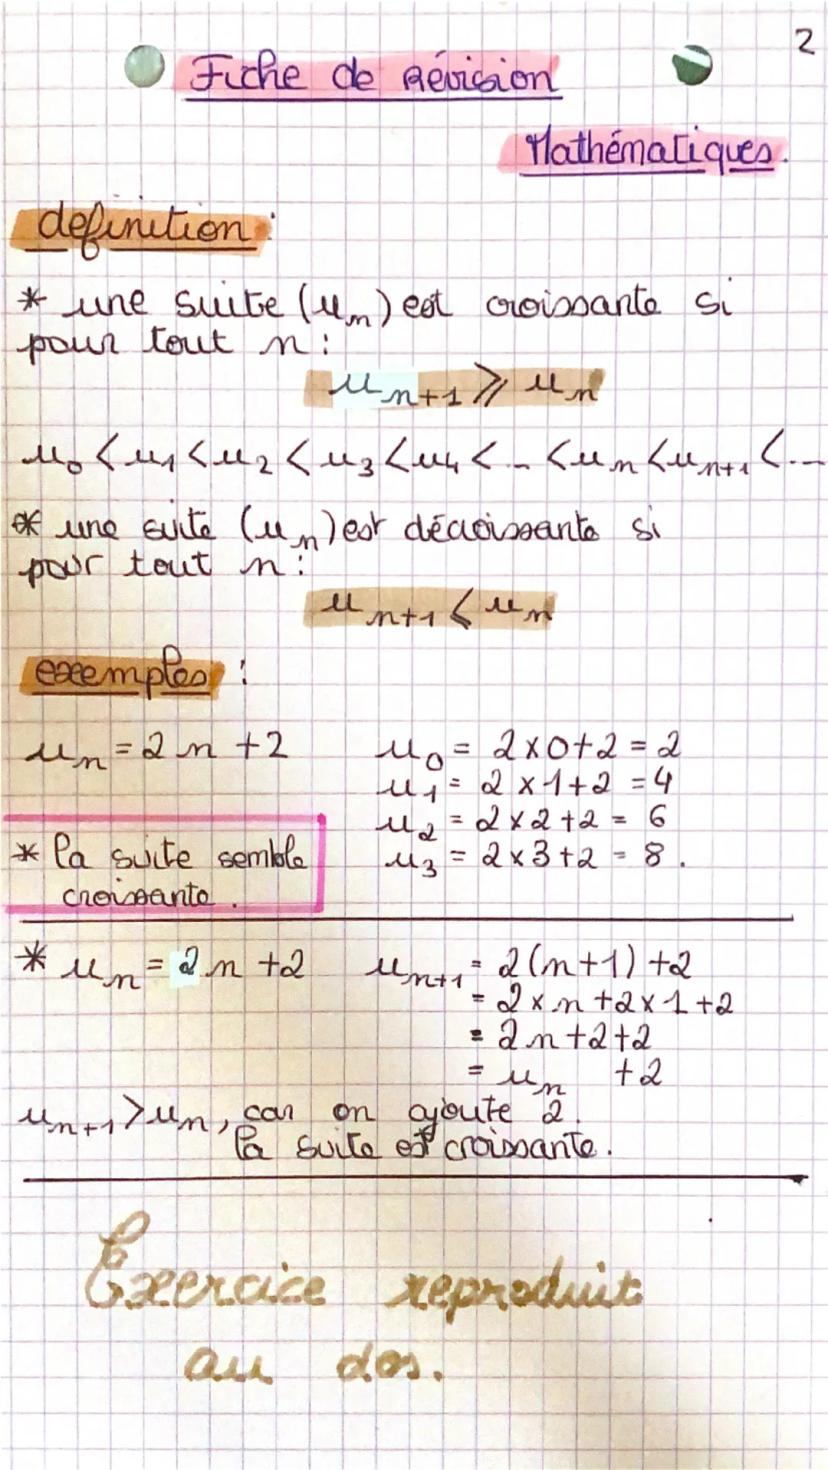 2
Fiche de Révision
Mathématiques.
definition :
* une suite (un) est croissante si
pour tout n :
un+1 ⩾ un
u0 < u1 < u2 < u3 < u4 < ... < un < un+1 < ...
* une suite (un) est décroissante si
pour tout n :
un+1 < un
exemples :
un = 2n +2
u0 = 2×0+2 = 2
u1 = 2 × 1+2 = 4
u2 = 2×2+2 = 6
u3 = 2×3+2 = 8 .
* la suite semble
croissante .
* un = 2n +2
un+1 = 2(n+1) +2
= 2×n+2×1+2
= 2n+2+2
= un +2
un+1 > un, car on ajoute 2.
la suite est croissante.
Exercice reproduit
au dos.